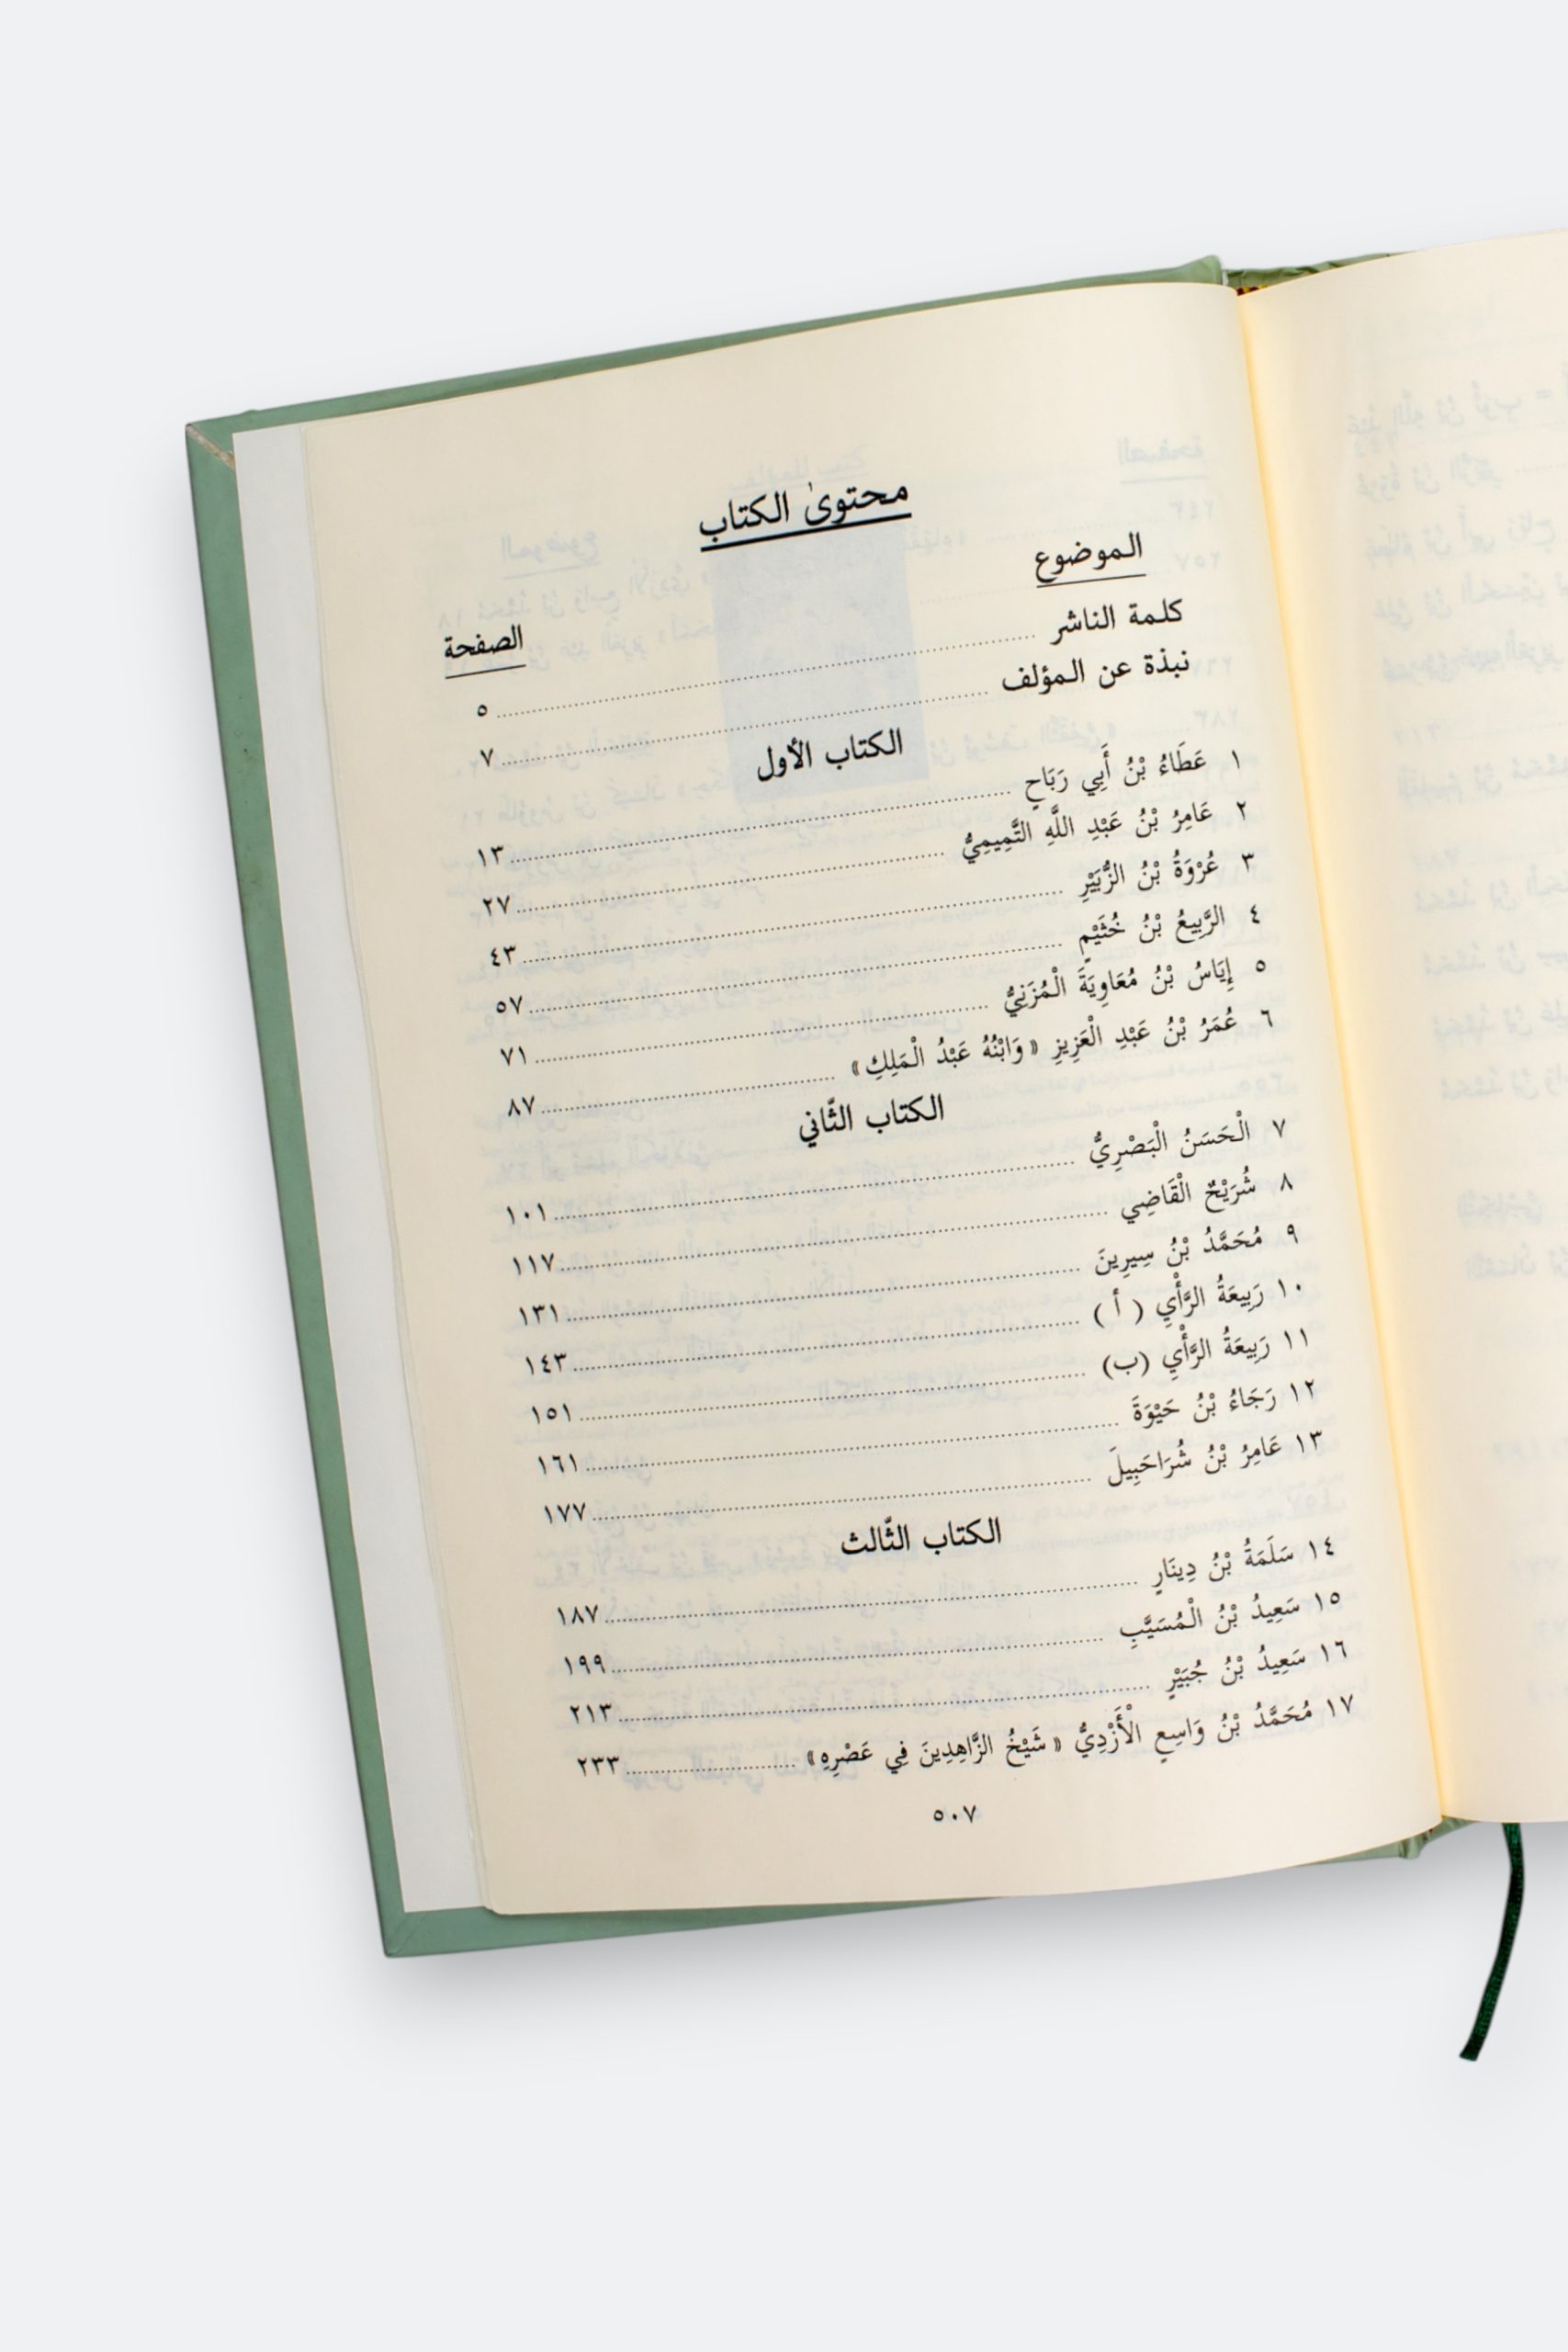 محتوىٰ الكتاب
الموضوع الصفحة
كلمة الناشر ٥
نبذة عن المؤلف ٧
الكتاب الأول
١ عَطَاءُ بْنُ أَبِي رَبَاحٍ ١٣
٢ عَامِرُ بْنُ عَبْدِ اللَّهِ التَّمِيمِيُّ ٢٧
٣ عُرْوَةُ بْنُ الزُّبَيْرِ ٤٣
٤ الرَّبِيعُ بْنُ خُثَيْمٍ ٥٧
٥ إِيَاسُ بْنُ مُعَاوِيَةَ الْمُزَنِيُّ ٧١
٦ عُمَرُ بْنُ عَبْدِ الْعَزِيزِ « وَابْنُهُ عَبْدُ الْمَلِكِ » ٨٧
الكتاب الثّاني
٧ الْحَسَنُ الْبَصْرِيُّ ١٠١
٨ شُرَيْحٌ الْقَاضِي ١١٧
٩ مُحَمَّدُ بْنُ سِيرِينَ ١٣١
١٠ رَبِيعَةُ الرَّأْيِ ( أ ) ١٤٣
١١ رَبِيعَةُ الرَّأْيِ (ب) ١٥١
١٢ رَجَاءُ بْنُ حَيْوَةَ ١٦١
١٣ عَامِرُ بْنُ شُرَاحَبِيلَ ١٧٧
الكتاب الثّالث
١٤ سَلَمَةُ بْنُ دِينَارٍ ١٨٧
١٥ سَعِيدُ بْنُ الْمُسَيَّبِ ١٩٩
١٦ سَعِيدُ بْنُ جُبَيْرٍ ٢١٣
١٧ مُحَمَّدُ بْنُ وَاسِعٍ الْأَزْدِيُّ « شَيْخُ الزَّاهِدِينَ فِي عَصْرِهِ » ٢٣٣
٥٠٧